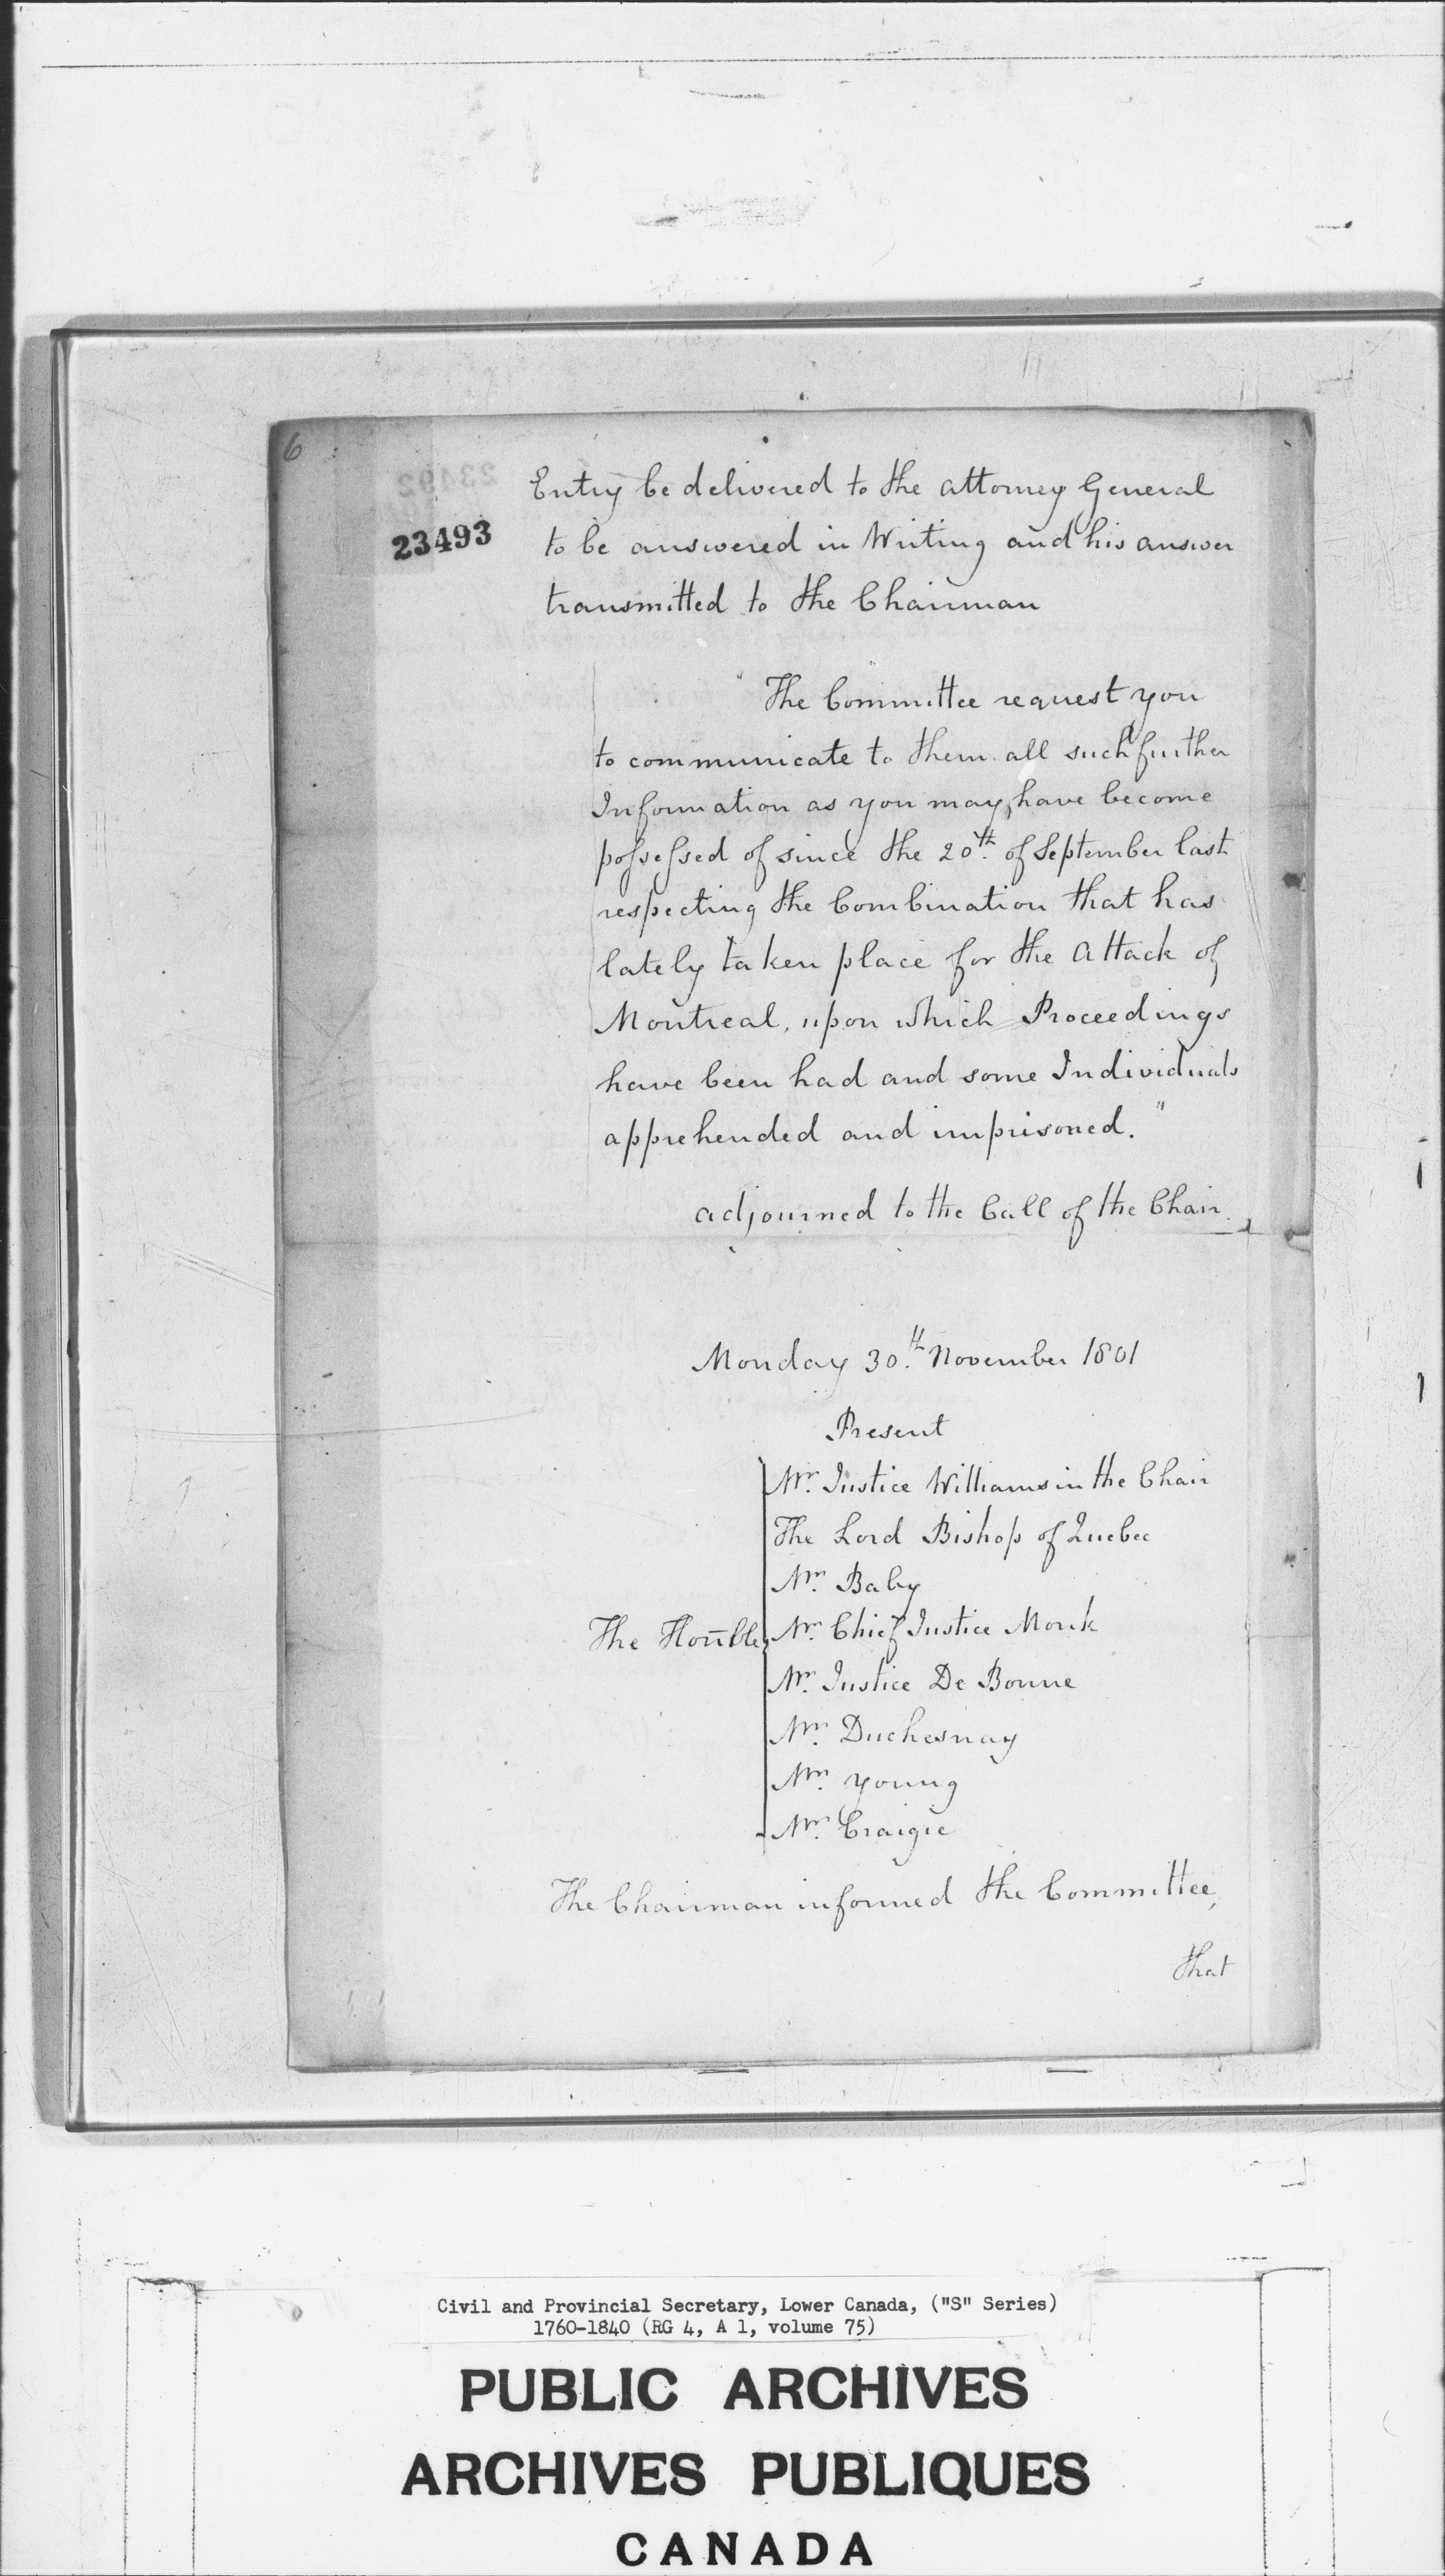 6
23492
23493
Entry be delivered to the Attorney General
to be answered in Writing and his answer
transmitted to the Chairman
"The Committee request you
to communicate to them all such further
Information as you may have become
possessed of since the 20th. of September last
respecting the Combination that has
lately taken place for the Attack of
Montreal, upon which Proceedings
have been had and some Individuals
apprehended and imprisoned."
adjourned to the Call of the Chair.
Monday 30.th November 1801
Present
Mr. Justice Williams in the Chair
The Lord Bishop of Quebec
Mr. Baby
The Honble Mr. Chief Justice Monk
Mr. Justice De Bonne
Mr. Duchesnay
Mr. Young
Mr. Craigie
The Chairman informed the Committee,
that
Civil and Provincial Secretary, Lower Canada, ("S" Series)
1760-1840 (RG 4, A 1, volume 75)
PUBLIC ARCHIVES
ARCHIVES PUBLIQUES
CANADA